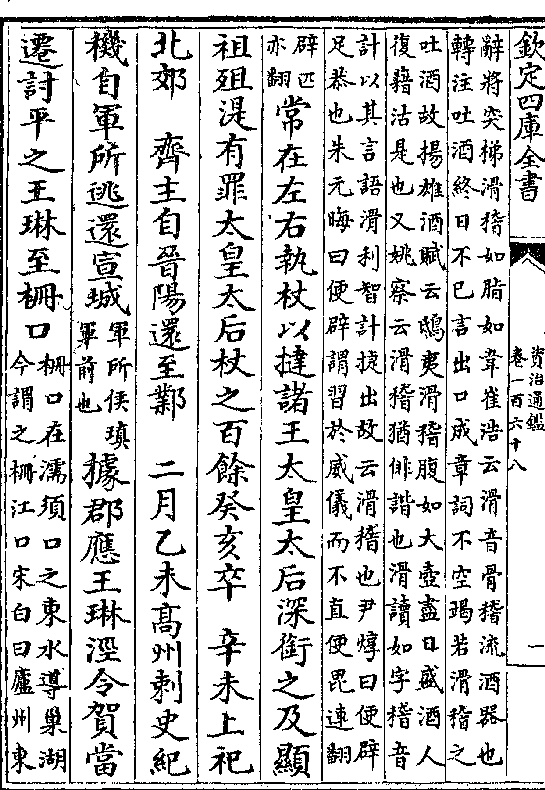 欽定四庫全書
資治通鑑
卷一百六十八
一
辭將突梯滑稽如脂如韋崔浩云滑音骨稽流酒器也
轉注吐酒終日不已言出口成章詞不空竭若滑稽之
吐酒故揚雄酒賦云鴟夷滑稽腹如大壺盡日盛酒人
復藉沽是也又姚察云滑稽猶俳諧也滑讀如字稽音
計以其言語滑利智計捷出故云滑稽也尹焞曰便辟
足恭也朱元晦曰便辟謂習於威儀而不直便毘連翻
辟匹
亦翻
常在左右執杖以撻諸王太皇太后深銜之及顯
祖殂湜有罪太皇太后杖之百餘癸亥卒 辛未上祀
北郊 齊主自晉陽還至鄴 二月乙未髙州刺史紀
機自軍所逃還宣城
軍所侯瑱
軍前也
據郡應王琳涇令賀當
遷討平之王琳至柵口
柵口在濡須口之東水導巢湖
今謂之柵江口宋白曰廬州東